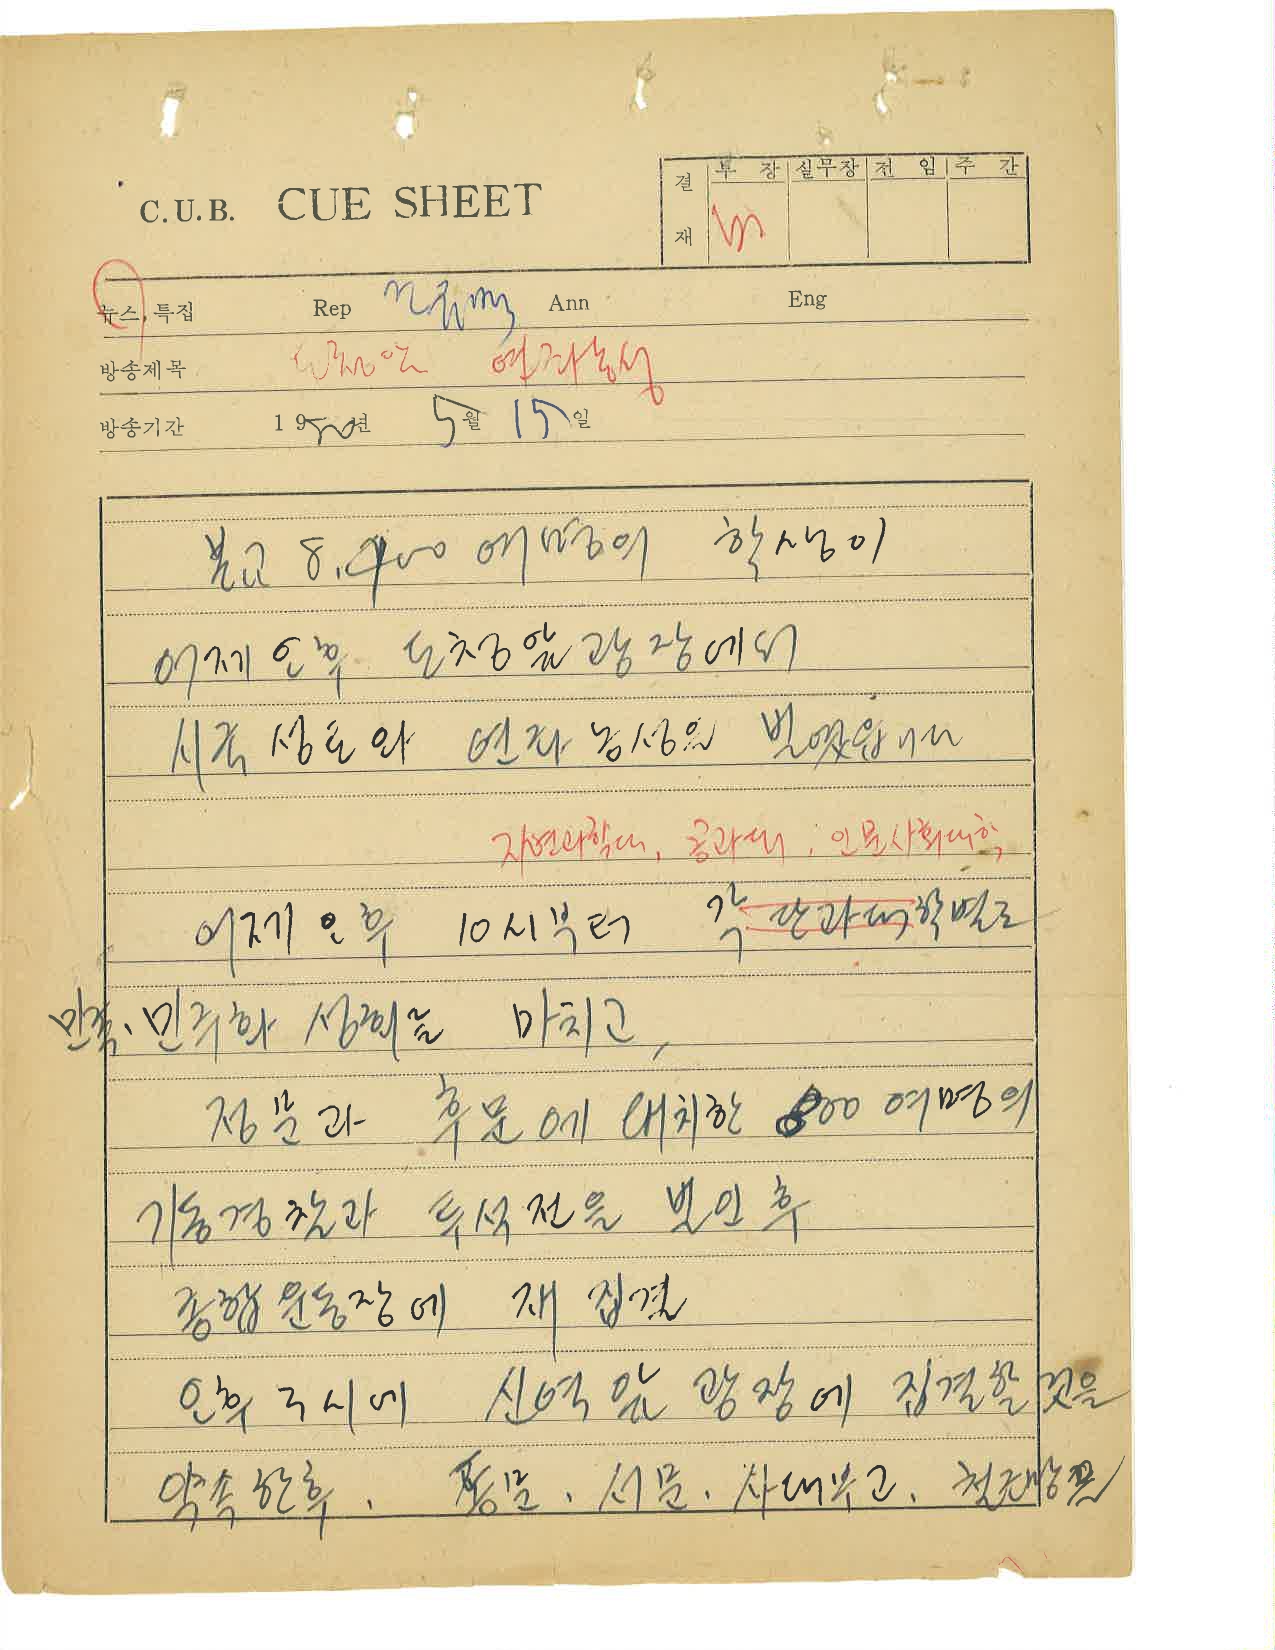 결재 부장 실무장 전임 주간
C.U.B. CUE SHEET
뉴스, 특집 Rep Ann Eng
방송제목 도청앞 연좌농성
방송기간 1980년 5월 15일
본교 8,000 여명의 학생이
어제 오후 도청앞 광장에서
시국 성토와 연좌 농성을 벌였읍니다
자연과학대, 공과대, 인문사회대학
어제 오후 10시부터 각 단과대학별로
민족, 민주화 성회를 마치고,
정문과 후문에 대치한 800 여명의
기동경찰과 투석전을 벌인 후
종합운동장에 재 집결
오후 3시에 신역 앞 광장에 집결할 것을
약속한 후, 동문, 서문, 사대부고,